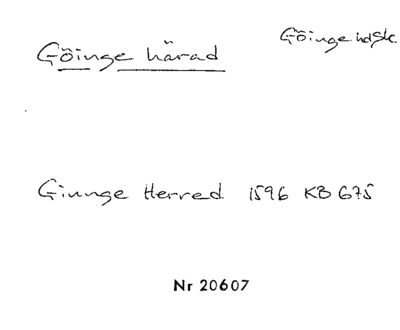 Göinge härad
Göinge hd Sk.
Giunge Herred 1596 KB 675
Nr 20607